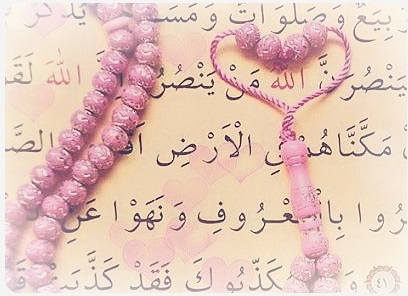 بِيَعٌ وَصَلَوَاتٌ وَمَسَـ يُذْكَرُ
يَنْصُرَنَّ اللّٰهُ مَنْ يَنْصُرُ اللّٰهَ لَقَو
مَكَّنَّاهُمْ فِي الْاَرْضِ اَقَا الصَّ
ـرُوا بِالْمَعْرُوفِ وَنَهَوْا عَنِ
وَ يُكَذِّبُوكَ فَقَدْ كَذَّبَتْ قَ
٤١